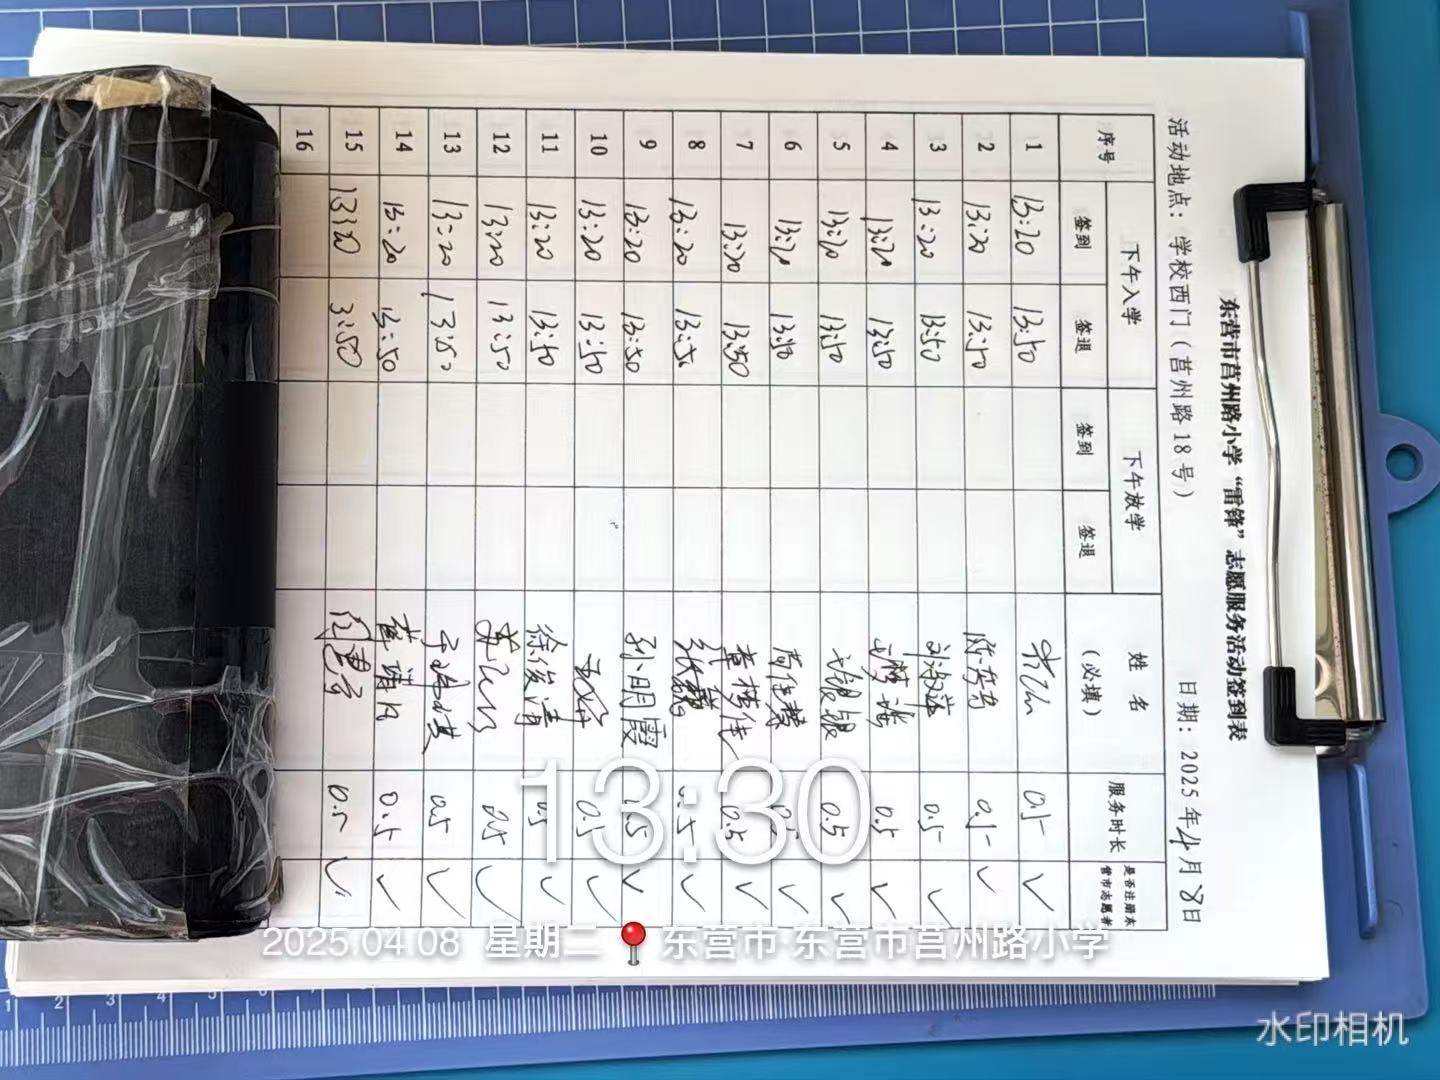 东营市莒州路小学“雷锋”志愿服务活动签到表
活动地点：学校西门（莒州路18号） 日期：2025年4月8日
序号 下午入学 下午放学 姓名（必填） 服务时长 是否注册东营市志愿者
签到 签退 签到 签退
1 13:20 13:50 0.5 ✓
2 13:20 13:50 0.5 ✓
3 13:20 13:50 0.5 ✓
4 13:20 13:50 0.5 ✓
5 13:20 13:50 0.5 ✓
6 13:20 13:50 0.5 ✓
7 13:20 13:50 0.5 ✓
8 13:20 13:50 0.5 ✓
9 13:20 13:50 孙明霞 0.5 ✓
10 13:20 13:50 0.5 ✓
11 13:20 13:50 徐俊清 0.5 ✓
12 13:20 13:50 0.5 ✓
13 13:20 13:50 0.5 ✓
14 13:20 13:50 0.5 ✓
15 13:20 3:50 0.5 ✓
16
13:30
2025.04.08 星期二 东营市·东营市莒州路小学
水印相机